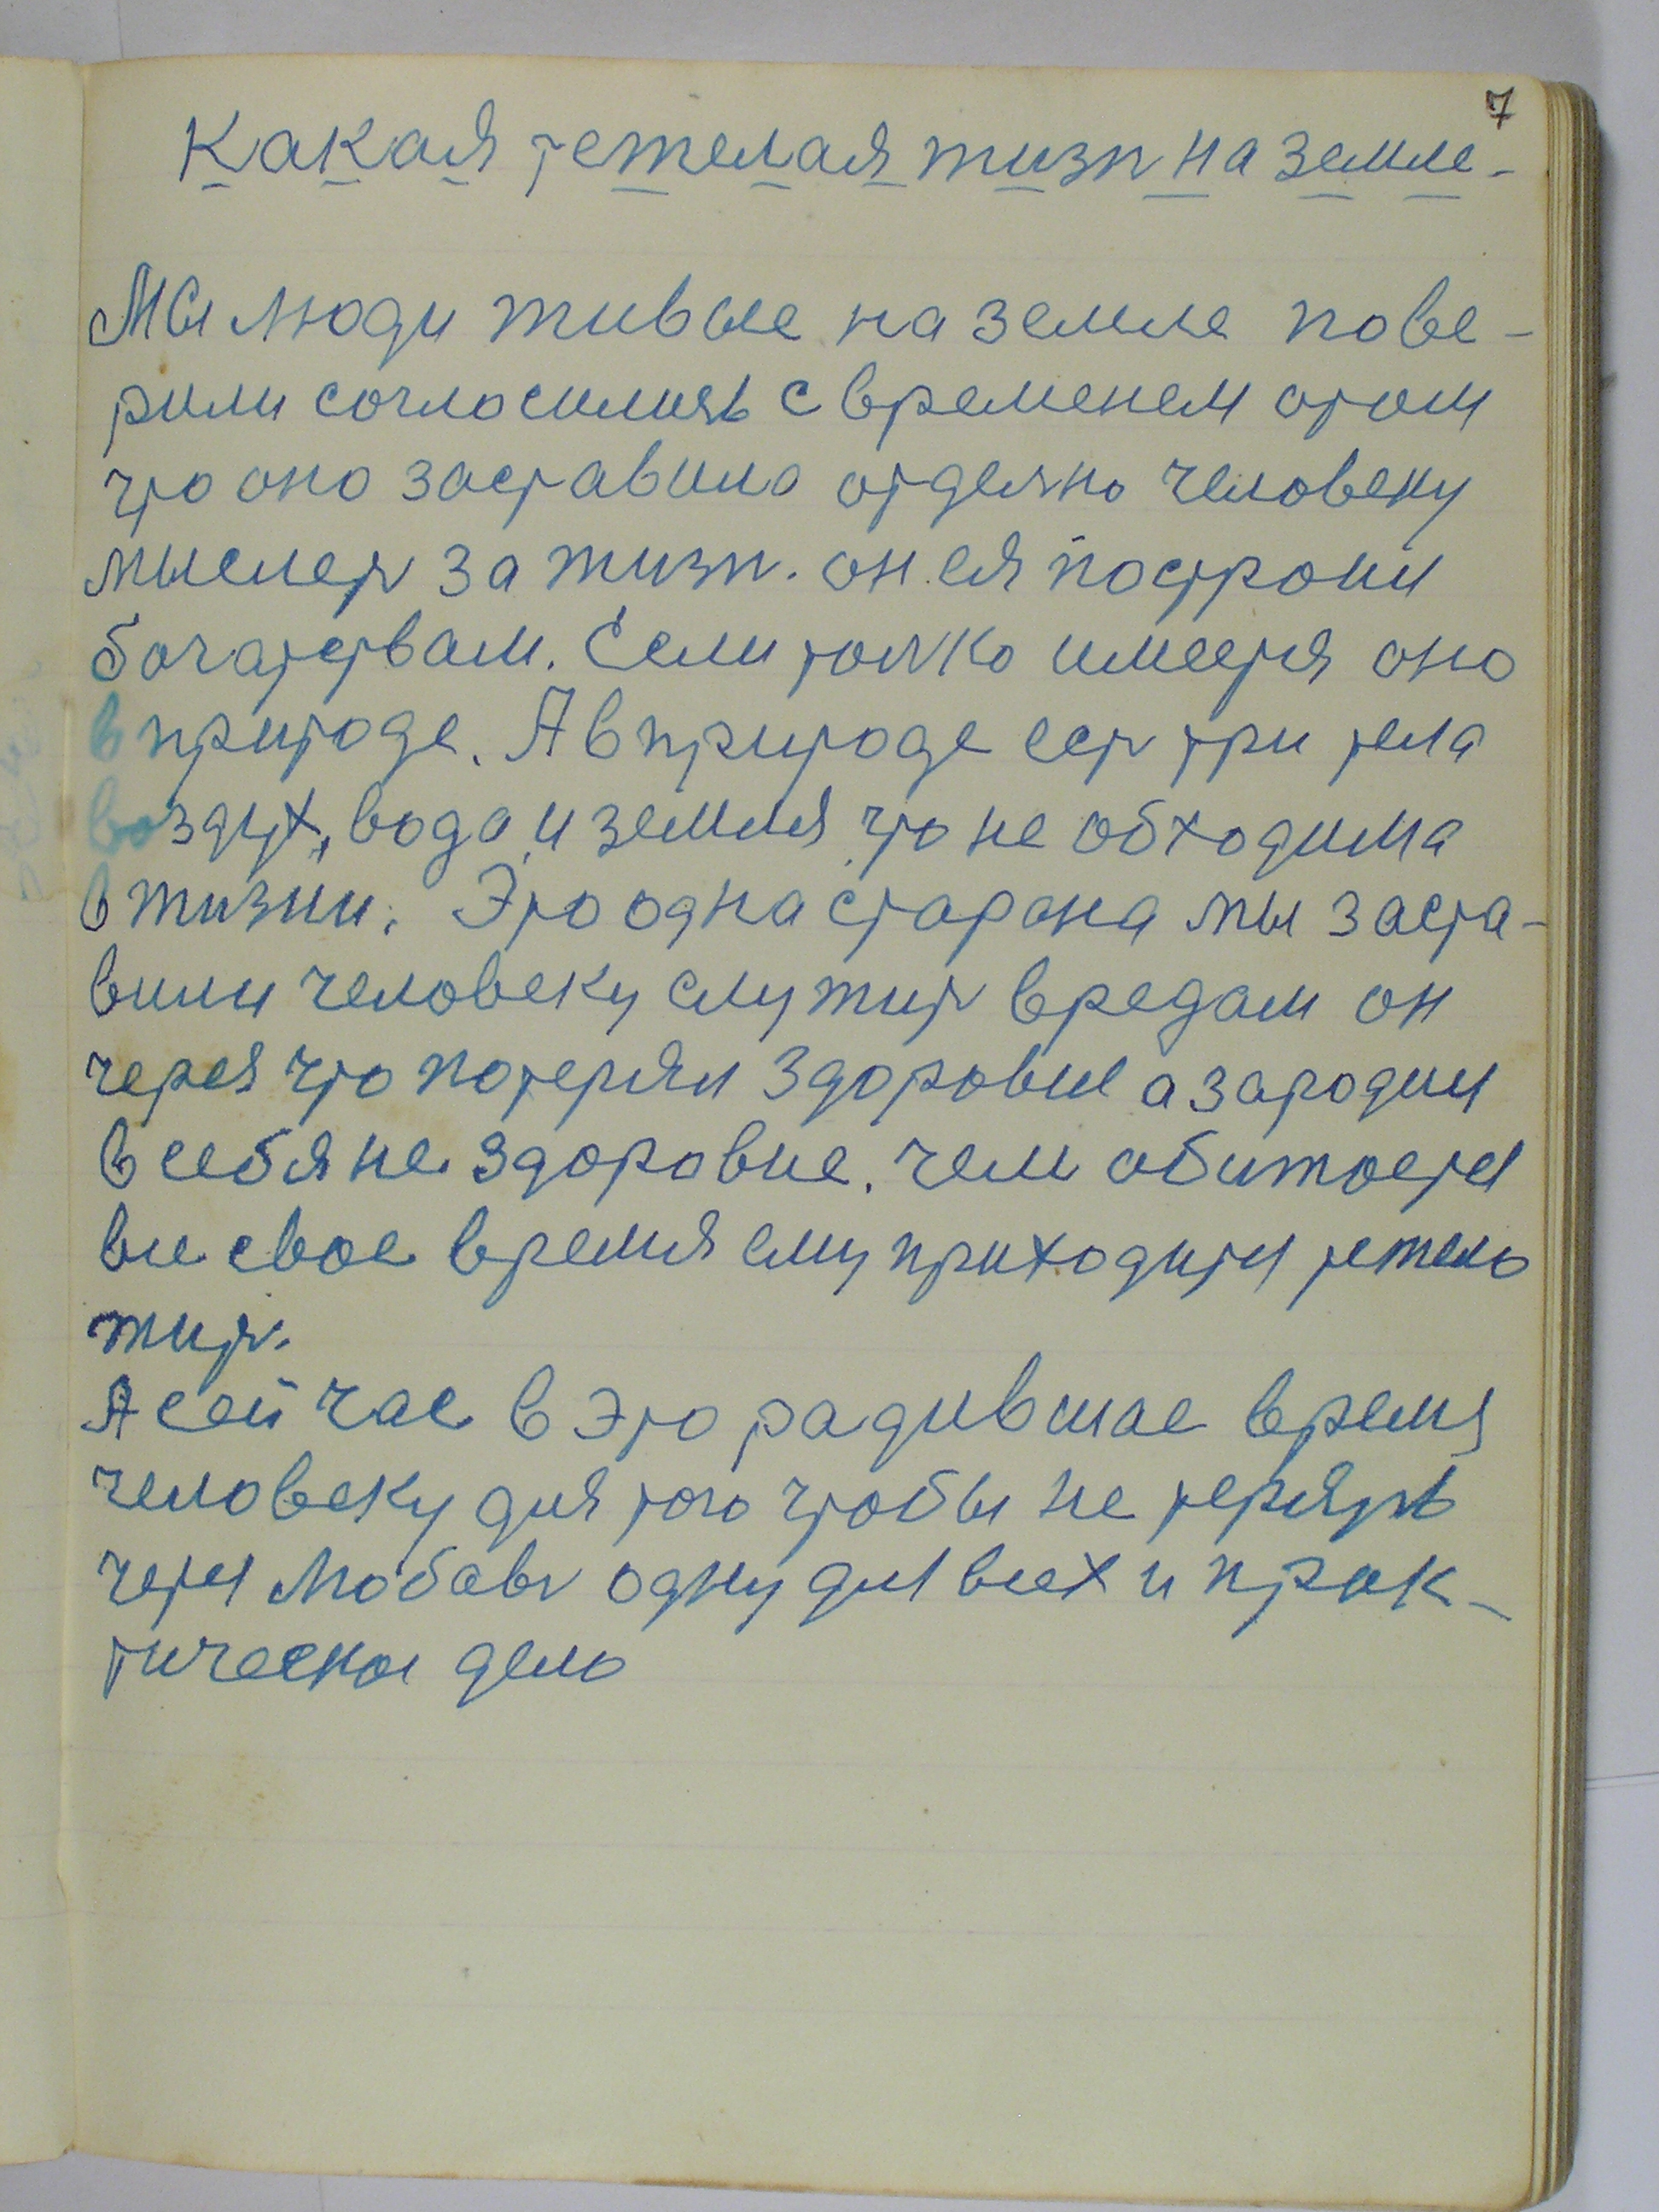 7
Какая тежелая жизн на земле-
Мы люди живые на земле пове-
рили согласилися с временем отом
что оно заставило отделно человеку
мыслет за жизн. он ея построил
богатствам. Если толко имеется оно
в природе. А в природе ест три тела
воздух, вода и земля что не обходима
в жизни. Это одна старана мы заста-
вили человеку служит вредам он
через что потерял здоровие а зародил
в себя не здоровие. чем обижается
все свое время ему приходится тежело
жит.
А сей час в это радившае время
человеку для того чтобы не терять
через любовь одну для всех и прак-
тическое дело